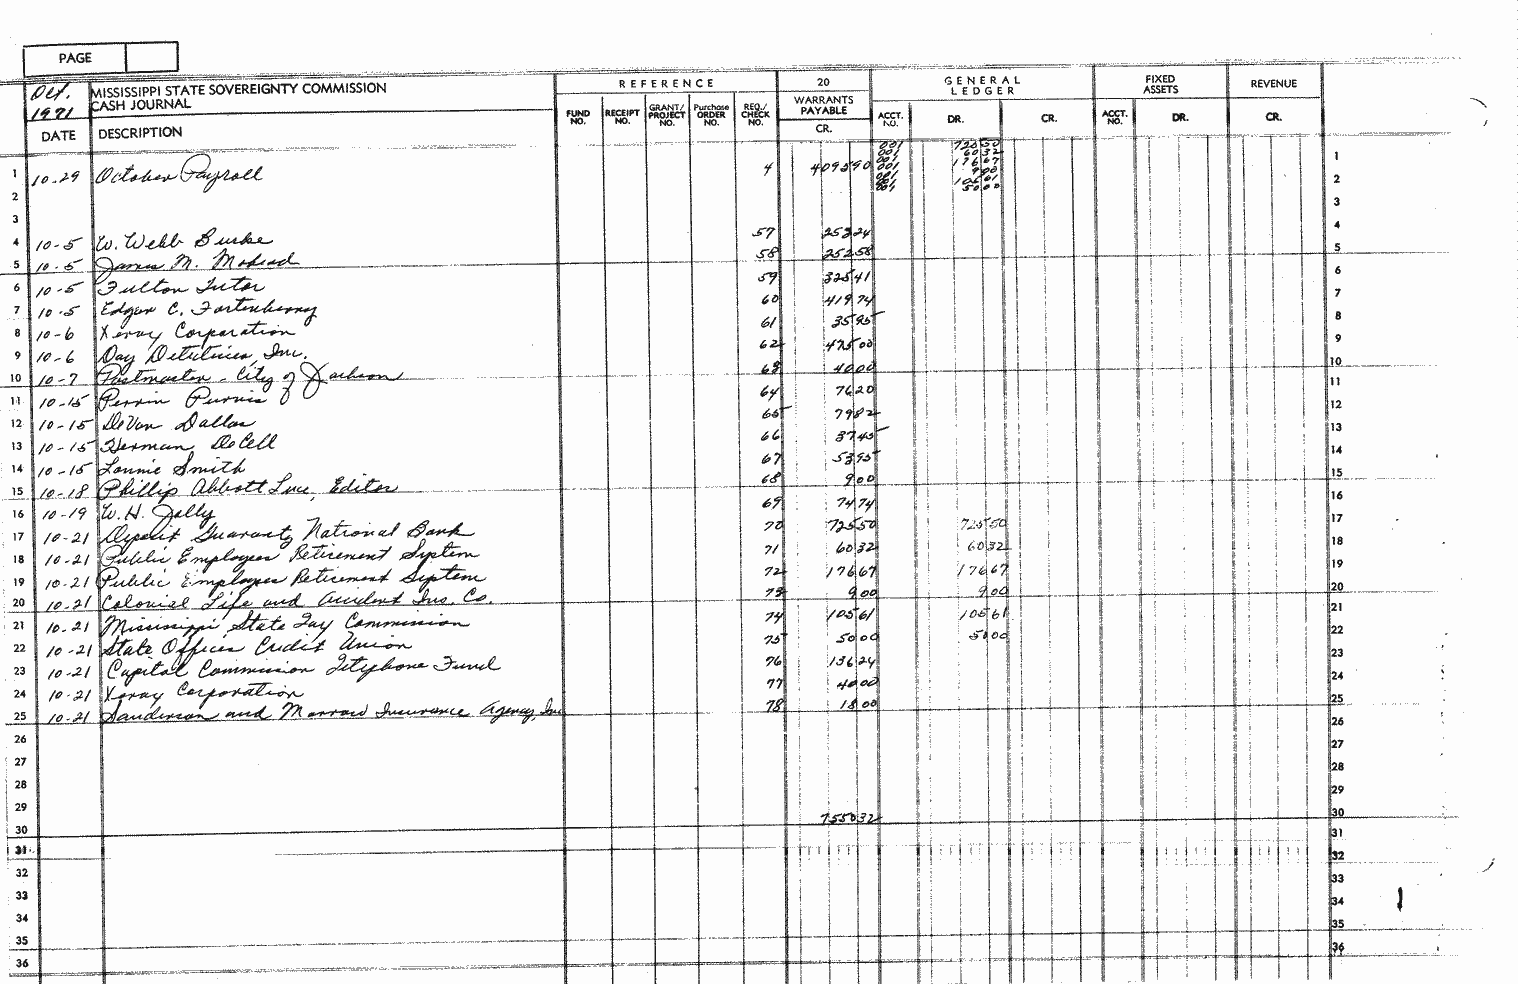 PAGE
Oct. 1971 MISSISSIPPI STATE SOVEREIGNTY COMMISSION CASH JOURNAL
REFERENCE 20 GENERAL LEDGER FIXED ASSETS REVENUE
DATE DESCRIPTION FUND NO. RECEIPT NO. GRANT/PROJECT NO. Purchase ORDER NO. REQ./CHECK NO. WARRANTS PAYABLE CR. ACCT. NO. DR. CR. ACCT. NO. DR. CR.
001 725 50
001 60 32
001 176 67
001 9 00
001 105 61
001 50 00
1 10-29 October Payroll 4 4095 90 1
2 2
3 3
4 10-5 W. Webb Burke 57 253 24 4
5 10-5 James M. Mohead 58 252 58 5
6 10-5 Fulton Tutor 59 325 41 6
7 10-5 Edgar C. Fortenberry 60 419 74 7
8 10-6 Xerox Corporation 61 35 95 8
9 10-6 Day Detectives, Inc. 62 475 00 9
10 10-7 Postmaster - City of Jackson 63 40 00 10
11 10-15 Perrin Purvis 64 76 20 11
12 10-15 DeVan Dallas 65 79 82 12
13 10-15 Herman DeCell 66 37 45 13
14 10-15 Lonnie Smith 67 53 95 14
15 10-18 Phillip Abbott Luce, Editor 68 9 00 15
16 10-19 W. H. Jolly 69 74 74 16
17 10-21 Deposit Guaranty National Bank 70 725 50 725 50 17
18 10-21 Public Employees Retirement System 71 60 32 60 32 18
19 10-21 Public Employees Retirement System 72 176 67 176 67 19
20 10-21 Colonial Life and Accident Ins. Co. 73 9 00 9 00 20
21 10-21 Mississippi State Tax Commission 74 105 61 105 61 21
22 10-21 State Offices Credit Union 75 50 00 50 00 22
23 10-21 Capitol Commission Telephone Fund 76 136 24 23
24 10-21 Xerox Corporation 77 40 00 24
25 10-21 Sanderson and Morrow Insurance Agency, Inc. 78 18 00 25
26 26
27 27
28 28
29 29
30 7550 32 30
31 31
32 32
33 33
34 34
35 35
36 36